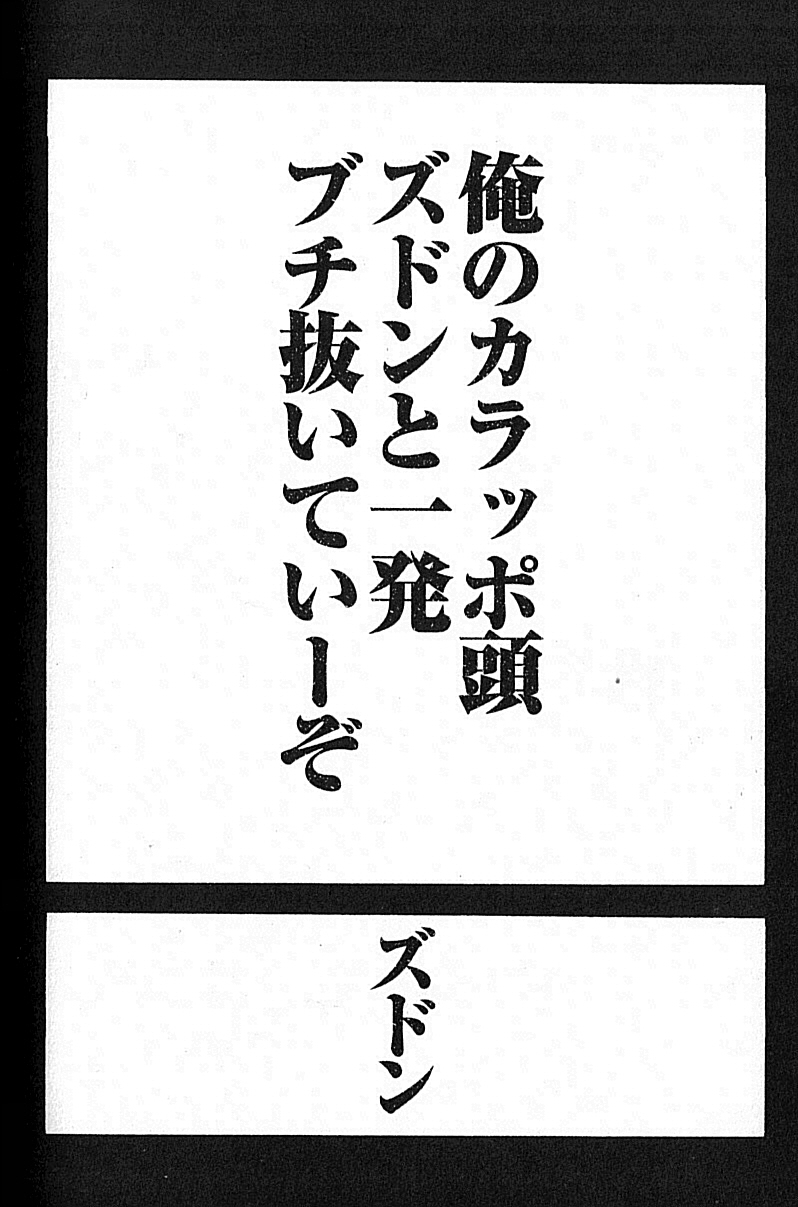 俺のカラッポ頭
ズドンと一発
ブチ抜いていーぞ
ズドン